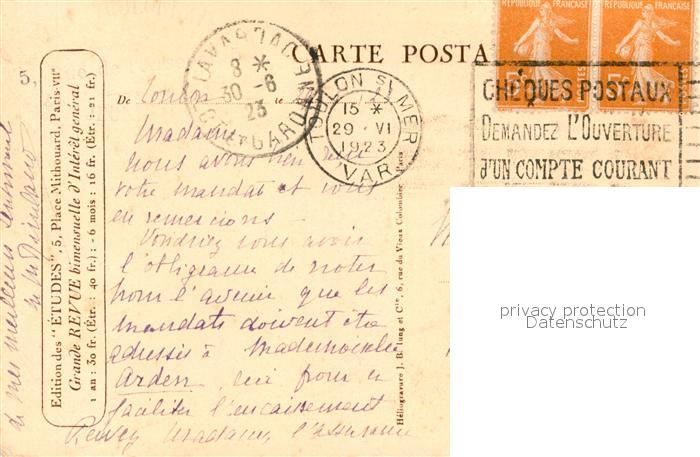 RÉPUBLIQUE FRANÇAISE
RÉPUBLIQUE FRANÇAISE
CARTE POSTA
5
LAVAUR
8 *
30 - 6
23
HTE GARONNE
TOULON S MER
15 *
29 · VI
1923
VAR
CHÈQUES POSTAUX
DEMANDEZ L'OUVERTURE
D'UN COMPTE COURANT
De Toulon le
Madame
Nous avons bien reçu
votre mandat et vous
en remercions.
Voudriez vous avoir
l'obligeance de noter
pour l'avenir que les
mandats doivent être
adressés à Mademoiselle
Arden, ceci pour en
faciliter l'encaissement
Recevez Madame, l'assurance
de mes meilleurs sentiments
Edition des "ÉTUDES", 5, Place Mithouard, Paris-VIIe
Grande REVUE bimensuelle d'Intérêt général
1 an : 30 fr. (Étr. : 40 fr.) : - 6 mois : 16 fr. (Étr. : 21 fr.)
Héliogravure J. B. Iung et Cie, 6, rue du Vieux Colombier, Paris
privacy protection
Datenschutz